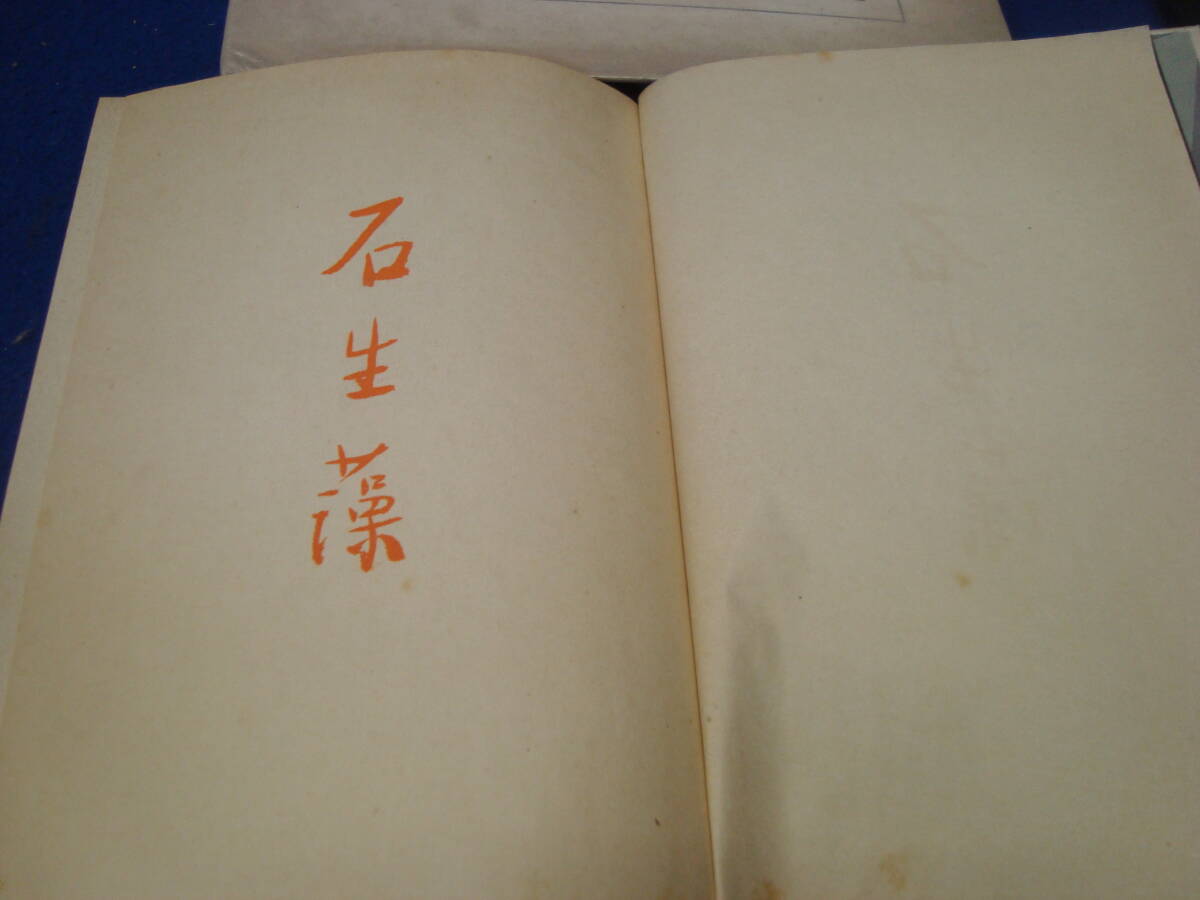 石生藻